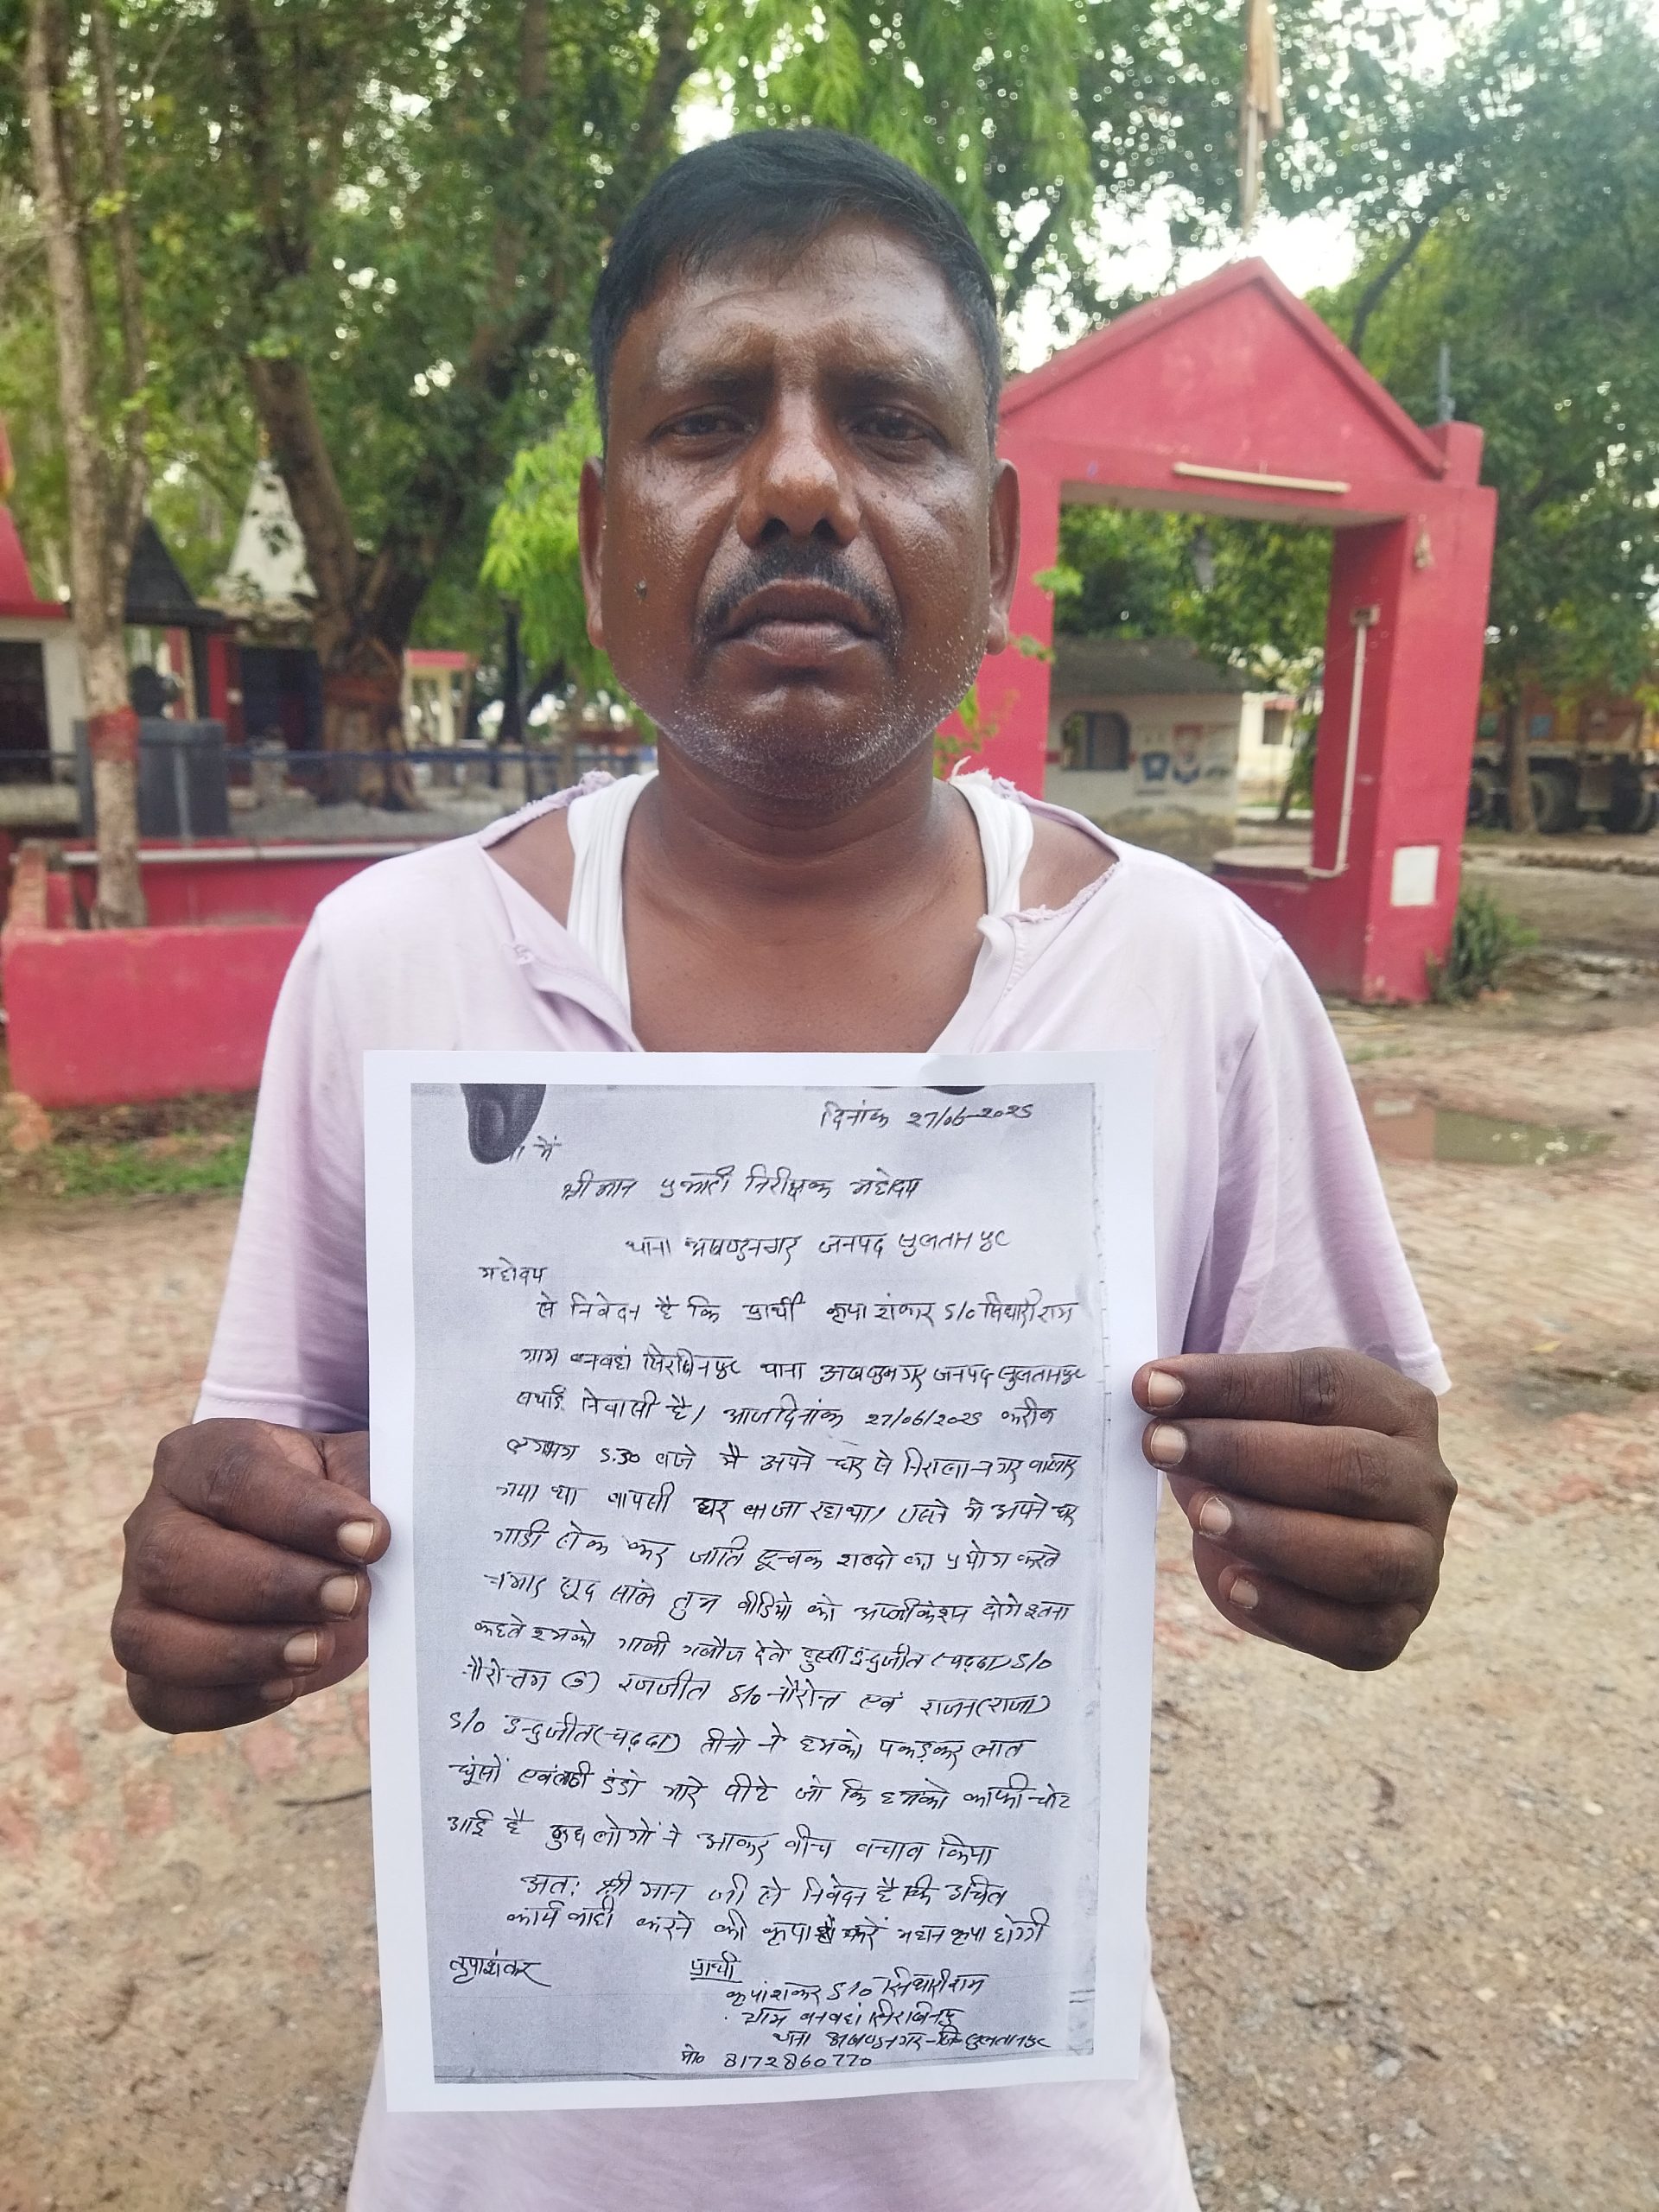 दिनांक 27/06-2025
में
श्रीमान प्रभारी निरीक्षक महोदय
थाना अखण्डनगर जनपद सुलतानपुर
महोदय
से निवेदन है कि प्रार्थी कृपा शंकर S/o सिधारीराम
ग्राम बनवहां मिरघिनपुर थाना अखण्डनगर जनपद सुलतानपुर
स्थाई निवासी है। आज दिनांक 27/06/2025 करीब
लगभग 5.30 बजे मै अपने घर से निराला नगर बाजार
गया था वापसी घर को जा रहा था, रास्ते मे अपने घर
गाडी रोक कर जाति सूचक शब्दो का प्रयोग करते
चमार सूद साले तुम वीडियो को अप्लीकेशन दोगे इतना
कहते हमको गाली गलौज देते हुए इन्द्रजीत (चद्दा) S/o
रंजीत S/o एवं राजन (राजा)
S/o इन्द्रजीत (चद्दा) तीनो ने हमको पकड़कर लात
घूंसों एवं लाठी डंडो मारे पीटे जो कि हमको काफी चोट
आई है कुछ लोगों ने आकर बीच बचाव किया
अतः श्री मान जी से निवेदन है कि उचित
कार्यवाही करने की कृपा करें महान कृपा होगी
कृपाशंकर
प्रार्थी
कृपाशंकर S/o सिधारीराम
ग्राम बनवहां
थाना अखण्डनगर-जि-सुलतानपुर
मो० 8172860770